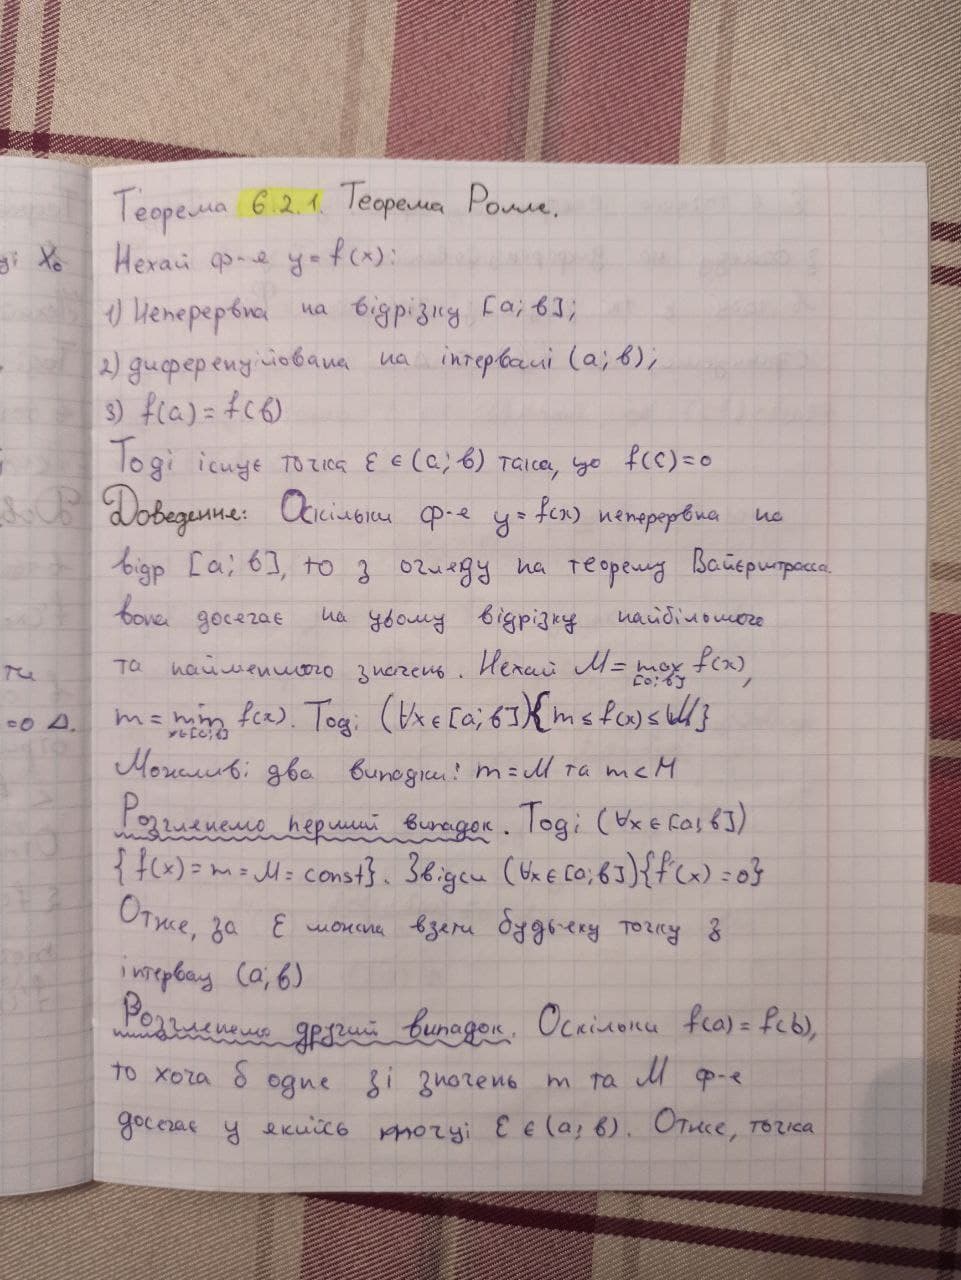 Теорема 6.2.1. Теорема Ролле.
ці x₀
Нехай ф-я y = f(x):
1) Неперервна на відрізку [a; b];
2) диференційована на інтервалі (a; b);
3) f(a) = f(b)
Тоді існує точка ξ ∈ (a; b) така, що f(ξ) = 0
Доведення: Оскільки ф-я y = f(x) неперервна на
відр [a; b], то з огляду на теорему Вайєрштрасса.
вона досягає на цьому відрізку найбільшого
ти
та найменшого значень. Нехай M = max f(x),
[a; b]
=0 Δ.
m = min f(x). Тоді (∀x ∈ [a; b]){m ≤ f(x) ≤ M}
x∈[a; b]
Можливі два випадки: m = M та m < M
Розглянемо перший випадок. Тоді (∀x ∈ [a; b])
{f(x) = m = M = const}. Звідси (∀x ∈ [a; b]){f'(x) = 0}
Отже, за ξ можна взяти будь-яку точку з
інтервалу (a; b)
Розглянемо другий випадок. Оскільки f(a) = f(b),
то хоча б одне зі значень m та M ф-я
досягає у якійсь точці ξ ∈ (a; b). Отже, точка